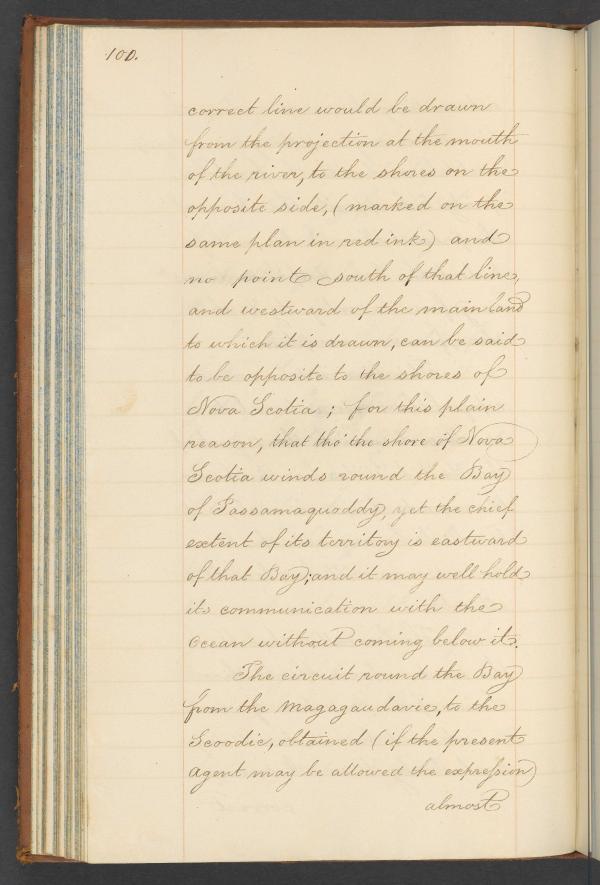 100.
correct line would be drawn
from the projection at the mouth
of the river, to the shores on the
opposite side, (marked on the
same plan in red ink) and
no point south of that line,
and westward of the main land
to which it is drawn, can be said
to be opposite to the shores of
Nova Scotia ; for this plain
reason, that tho' the shore of Nova
Scotia winds round the Bay
of Passamaquoddy, yet the chief
extent of its territory is eastward
of that Bay; and it may well hold
its communication with the
Ocean without coming below it.
The circuit round the Bay
from the Magagaudavic, to the
Scoodic, obtained (if the present
agent may be allowed the expression)
almost